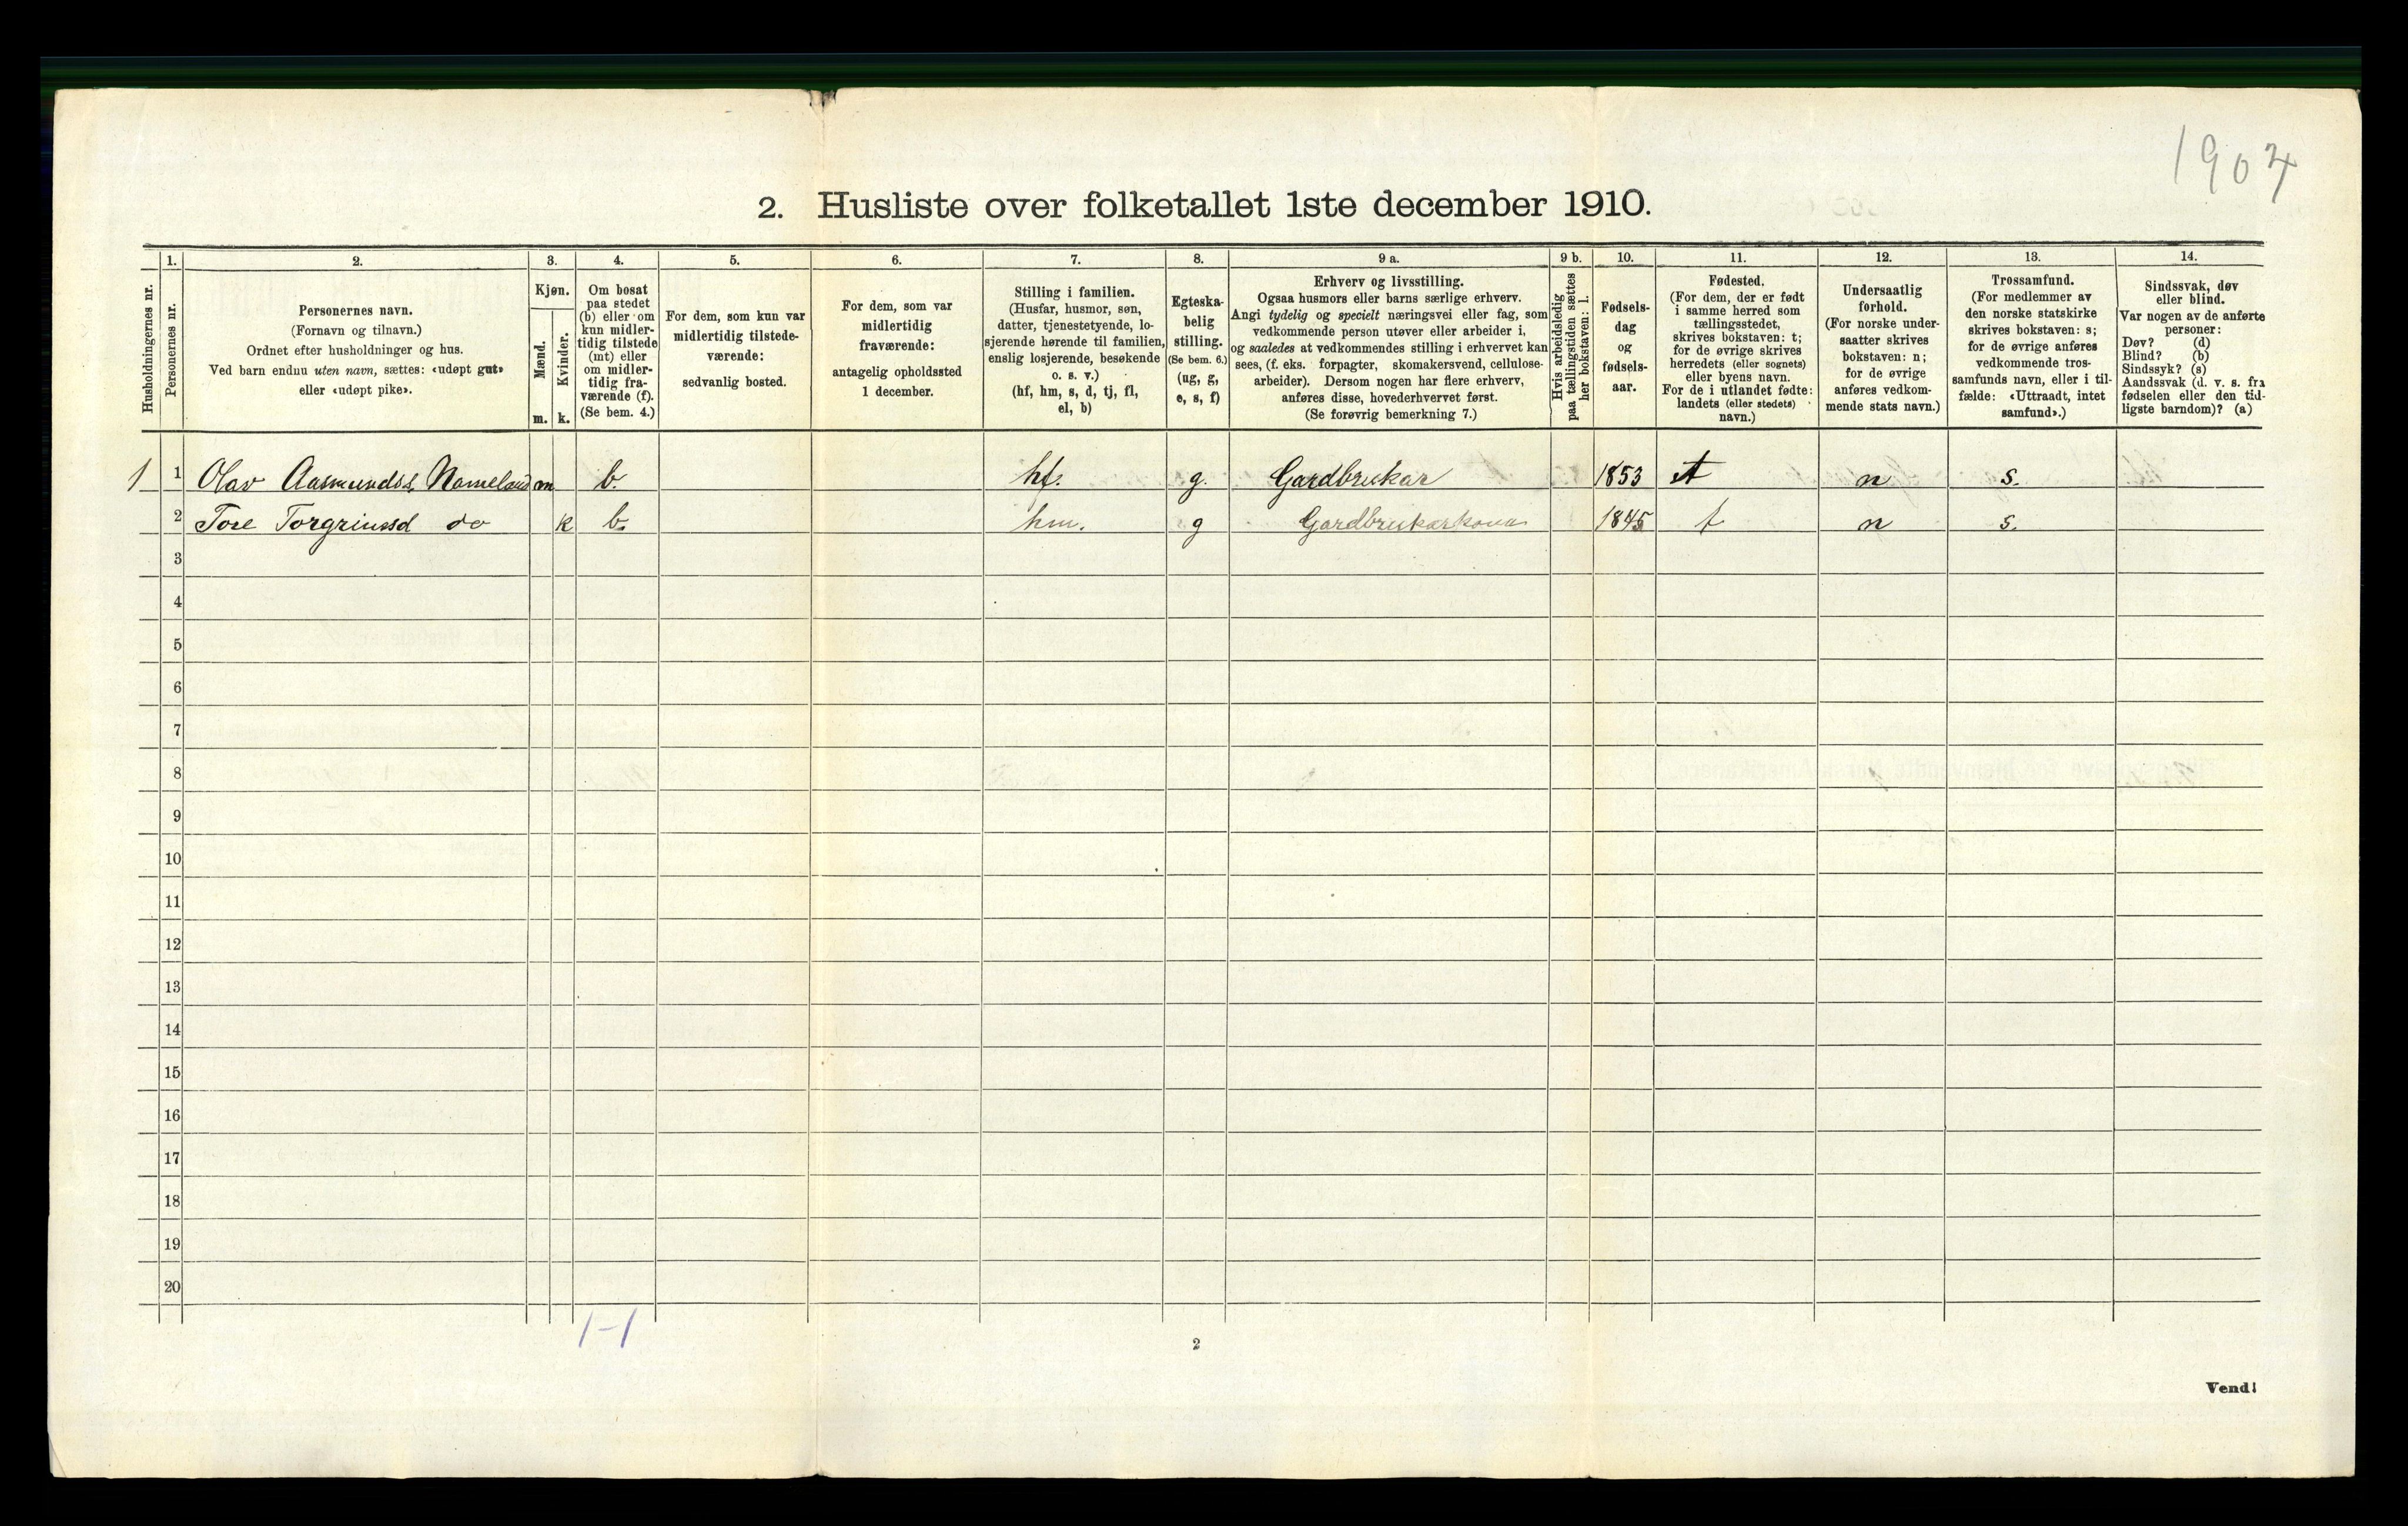 1904
2. Husliste over folketallet 1ste december 1910.
Husholdningernes nr.
1.
Personernes nr.
2.
Personernes navn.
(Fornavn og tilnavn.)
Ordnet efter husholdninger og hus.
Ved barn endnu uten navn, sættes: «udøpt gut»
eller «udøpt pike».
3.
Kjøn.
Mænd.
m.
Kvinder.
k.
4.
Om bosat
paa stedet
(b) eller om
kun midler-
tidig tilstede
(mt) eller
om midler-
tidig fra-
værende (f).
(Se bem. 4.)
5.
For dem, som kun var
midlertidig tilstede-
værende:
sedvanlig bosted.
6.
For dem, som var
midlertidig
fraværende:
antagelig opholdssted
1 december.
7.
Stilling i familien.
(Husfar, husmor, søn,
datter, tjenestetyende, lo-
sjerende hørende til familien,
enslig losjerende, besøkende
o. s. v.)
(hf, hm, s, d, tj, fl,
el, b)
8.
Egteska-
belig
stilling.
(Se bem. 6.)
(ug, g,
e, s, f)
9 a.
Erhverv og livsstilling.
Ogsaa husmors eller barns særlige erhverv.
Angi tydelig og specielt næringsvei eller fag, som
vedkommende person utøver eller arbeider i,
og saaledes at vedkommendes stilling i erhvervet kan
sees, (f. eks. forpagter, skomakersvend, cellulose-
arbeider). Dersom nogen har flere erhverv,
anføres disse, hovederhvervet først.
(Se forøvrig bemerkning 7.)
9 b.
Hvis arbeidsledig
paa tællingstiden sættes
her bokstaven: l.
10.
Fødsels-
dag
og
fødsels-
aar.
11.
Fødested.
(For dem, der er født
i samme herred som
tællingsstedet,
skrives bokstaven: t;
for de øvrige skrives
herredets (eller sognets)
eller byens navn.
For de i utlandet fødte:
landets (eller stedets)
navn.)
12.
Undersaatlig
forhold.
(For norske under-
saatter skrives
bokstaven: n;
for de øvrige
anføres vedkom-
mende stats navn.)
13.
Trossamfund.
(For medlemmer av
den norske statskirke
skrives bokstaven: s;
for de øvrige anføres
vedkommende tros-
samfunds navn, eller i til-
fælde: «Uttraadt, intet
samfund».)
14.
Sindssvak, døv
eller blind.
Var nogen av de anførte
personer:
Døv? (d)
Blind? (b)
Sindssyk? (s)
Aandssvak (d. v. s. fra
fødselen eller den tid-
ligste barndom)? (a)
1 1 Olav Aasmundss. Nomeland m b. hf. g. Gardbrukar 1853 t n s.
2 Tore Torgrimsd do k b. hm. g Gardbrukarkona 1845 t n s.
3
4
5
6
7
8
9
10
11
12
13
14
15
16
17
18
19
20
1-1
2
Vend!